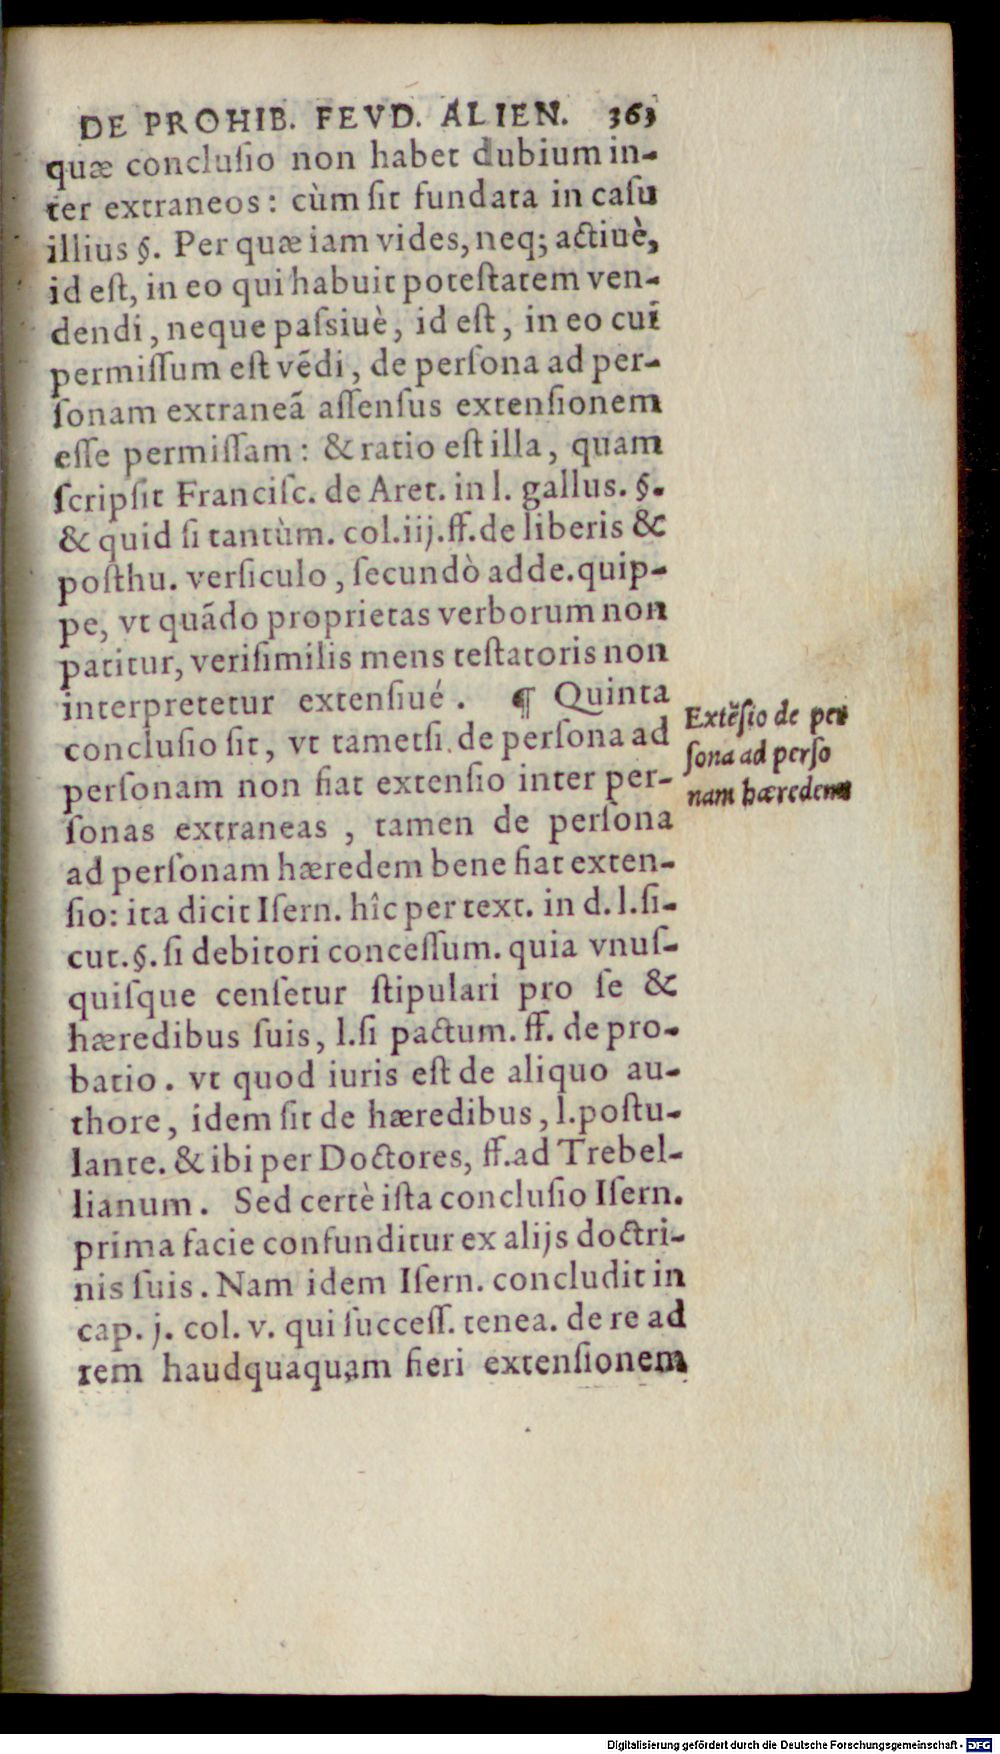 DE PROHIB. FEVD. ALIEN. 363
quæ concluſio non habet dubium in-
ter extraneos: cùm ſit fundata in caſu
illius §. Per quæ iam vides, neq; actiuè,
id eſt, in eo qui habuit poteſtatem ven-
dendi, neque paſsiuè, id eſt, in eo cui
permiſſum eſt vẽdi, de perſona ad per-
ſonam extraneã aſſenſus extenſionem
eſſe permiſſam: & ratio eſt illa, quam
ſcripſit Franciſc. de Aret. in l. gallus. §.
& quid ſi tantùm. col. iij. ff. de liberis &
poſthu. verſiculo, ſecundò adde. quip-
pe, vt quãdo proprietas verborum non
patitur, veriſimilis mens teſtatoris non
interpretetur extenſiué. ¶ Quinta
concluſio ſit, vt tametſi de perſona ad
perſonam non fiat extenſio inter per-
ſonas extraneas, tamen de perſona
ad perſonam hæredem bene fiat exten-
ſio: ita dicit Iſern. hîc per text. in d. l. ſi-
cut. §. ſi debitori conceſſum. quia vnuſ-
quiſque cenſetur ſtipulari pro ſe &
hæredibus ſuis, l. ſi pactum. ff. de pro-
batio. vt quod iuris eſt de aliquo au-
thore, idem ſit de hæredibus, l. poſtu-
lante. & ibi per Doctores, ff. ad Trebel-
lianum. Sed certè iſta concluſio Iſern.
prima facie confunditur ex alijs doctri-
nis ſuis. Nam idem Iſern. concludit in
cap. j. col. v. qui ſucceſſ. tenea. de re ad
rem haudquaquam fieri extenſionem
Extẽſio de per
ſona ad perſo
nam hæredem
Digitalisierung gefördert durch die Deutsche Forschungsgemeinschaft - DFG